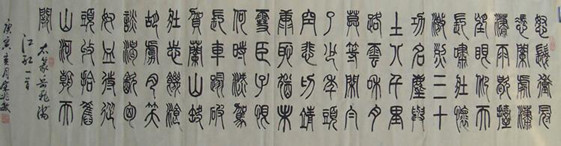 怒髮衝冠
憑闌處瀟
瀟雨歇擡
望眼仰天
長嘯壯懷
激烈三十
功名塵與
土八千里
路雲和月
莫等閒白
了少年頭
空悲切靖
康恥猶未
雪臣子恨
何時滅駕
長車踏破
賀蘭山缺
壯志饑餐
胡虜肉笑
談渴飲匈
奴血待從
頭收拾舊
山河朝天
闕
岳飛滿
江紅一首
庚寅月